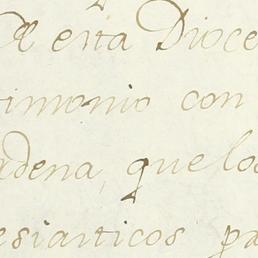 esta Dioce
timonio con
adena, que los
esiasticos pa